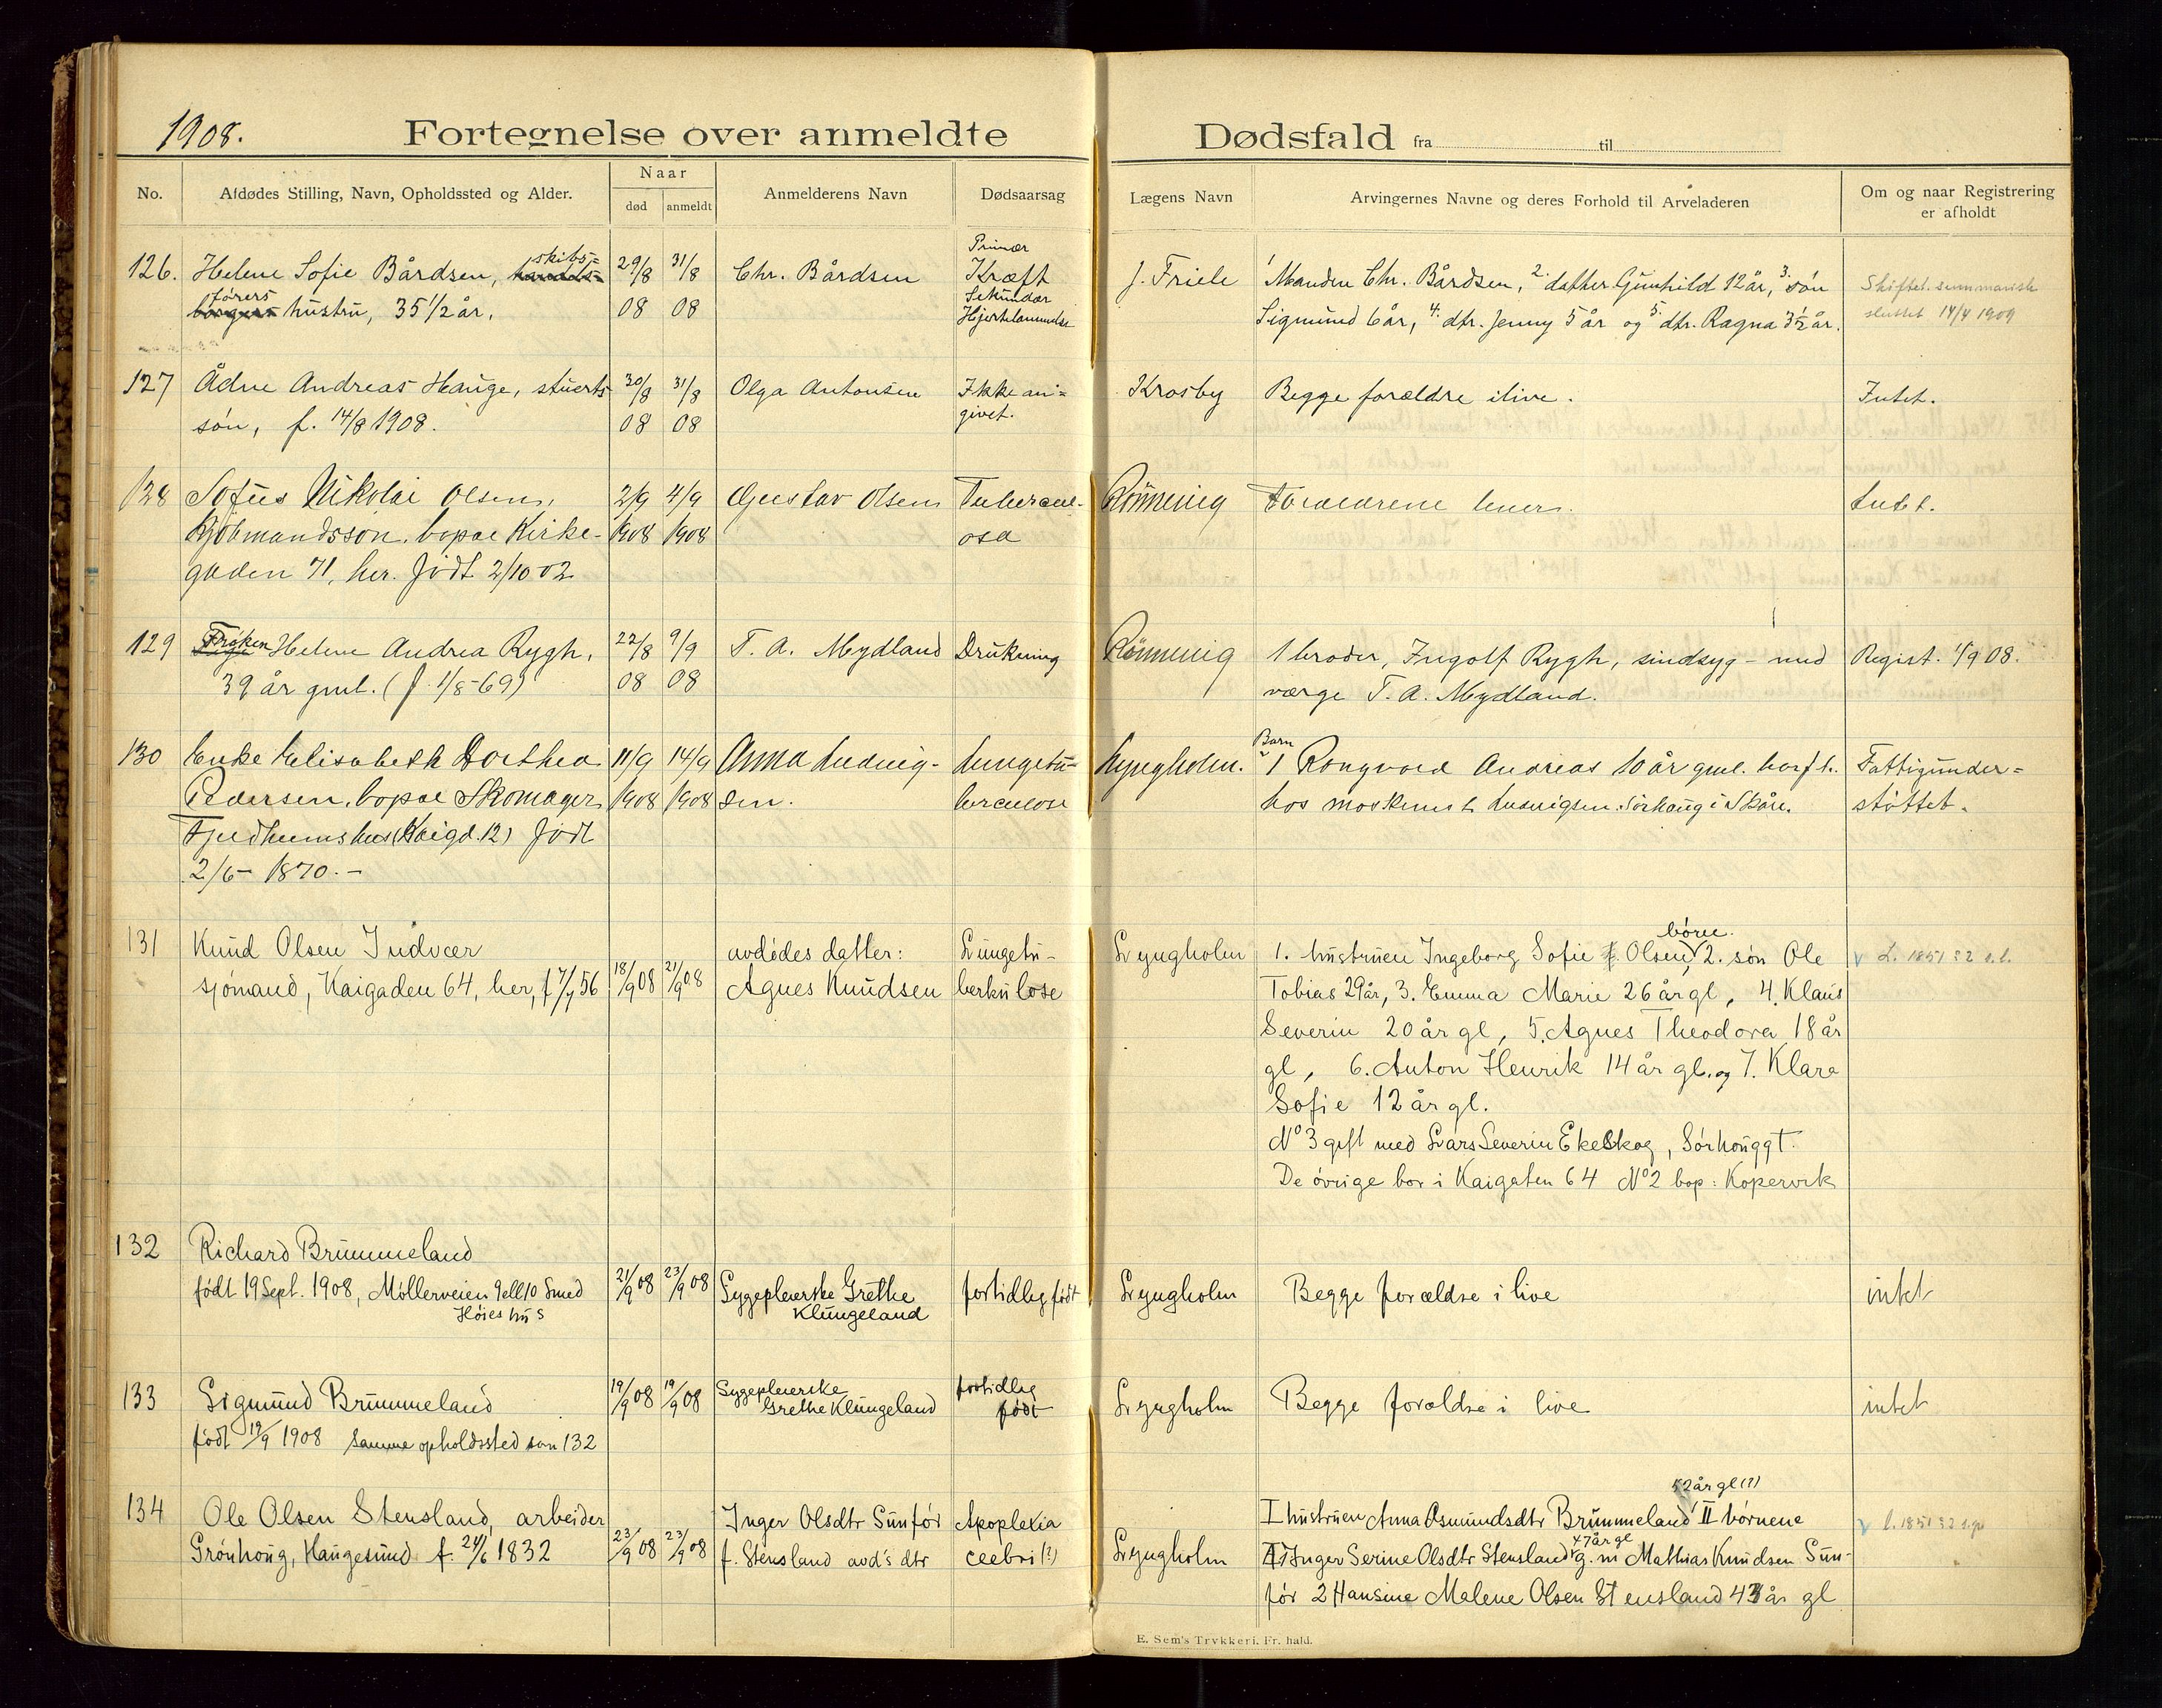 1908.
Fortegnelse over anmeldte Dødsfald fra til
No.
Afdødes Stilling, Navn, Opholdssted og Alder.
Naar
død
anmeldt
Anmelderens Navn
Dødsaarsag
Lægens Navn
Arvingernes Navne og deres Forhold til Arveladeren
Om og naar Registrering
er afholdt
126. Helene Sofie Bårdsen, skibs-
førers
hustru, 35 1/2 år.
29/8 31/8
08 08
Chr. Bårdsen
Primær
Kræft
Sekundær
Hjertelammelse
J. Friele
1 Manden Chr. Bårdsen, 2. datter Gunhild 12 år, 3. søn
Sigmund 6 år, 4. dtr. Jenny 5 år og 5. dtr. Ragna 3 1/2 år.
Skiftet summarisk
sluttet 14/4 1909
127 Ådne Andreas Hauge, stuerts
søn, f. 14/8 1908.
30/8 31/8
08 08
Olga Antonsen
Ikke an=
givet.
Krosby
Begge forældre ilive.
Intet.
128 Sofus Nikolai Olsen,
Kjøbmandssøn, bopæl Kirke-
gaden 71, her. født 2/10 02
2/9 4/9
1908 1908
Gustav Olsen
Tubercul-
osa
Rönnevig
Forældrene lever.
Intet.
129 Frøken Helene Andrea Rygh,
39 år gml. (f. 1/8-69)
22/8 9/9
08 08
T. A. Mydland
Drukning
Rönnevig
1 broder, Ingolf Rygh, sindsyg - med
værge T. A. Mydland.
Regist. 9 08.
130 Enke Elisabeth Dorthea
Pedersen, bopæl Skomager
Fjeldheims hus (Kaigd. 12) født
2/6 - 1870. -
11/9 14/9
1908 1908
Anna Ludvig-
sen.
Lungetu-
berculose
Lyngholm.
Barn
1 Rongvald Andreas 10 år gml.
hos Ludvigsen. Sørhaug i Skåre.
Fattigunder=
støttet.
131 Knud Olsen Indvær
sjømand, Kaigaden 64, her, f 7/9 56
18/9 08 21/9 08
avdødes datter:
Agnes Knudsen
Lungetu-
berkulose
Lyngholm
børn.
1. hustruen Ingeborg Sofie f. Olsen, 2. søn Ole
Tobias 29 år, 3. Emma Marie 26 år gl, 4. Klaus
Severin 20 år gl, 5. Agnes Theodora 18 år
gl, 6. Anton Henrik 14 år gl. og 7. Klara
Sofie 12 år gl.
No 3 gift med Lars Severin Ekelskog, Sørhauggt.
De øvrige bor i Kaigaten 64 No 2 bop: Kopervik
L. 1851 § 2 s.l.
132 Richard Brummeland
født 19 Sept. 1908, Møllerveien 9 ell 10 Smed
Høies hus
21/9 08 23/9 08
Sygepleierske Grethe
Klungeland
fortidlig født
Lyngholm
Begge forældre i live
intet
133 Sigmund Brummeland
født 19/9 1908 samme opholdssted som 132
19/9 08 19/9 08
Sygepleierske
Grethe Klungeland
fortidlig
født
Lyngholm
Begge forældre i live
intet
134 Ole Olsen Stensland, arbeider
Grønhoug, Haugesund f. 24/6 1832
23/9 08 23/9 08
Inger Olsdtr Sunfør
f. Stensland avd's dtr
Apoplexia
ceebri (?)
Lyngholm
52 år gl (?)
I hustruen Anna Osmundsdtr Brummeland II børnene
47 år gl
1 Inger Serine Olsdtr Stensland g. m Mathias Knudsen Sun-
før 2 Hansine Malene Olsen Stensland 43 år gl
l. 1851 § 2
E. Sem's Trykkeri. Fr. hald.